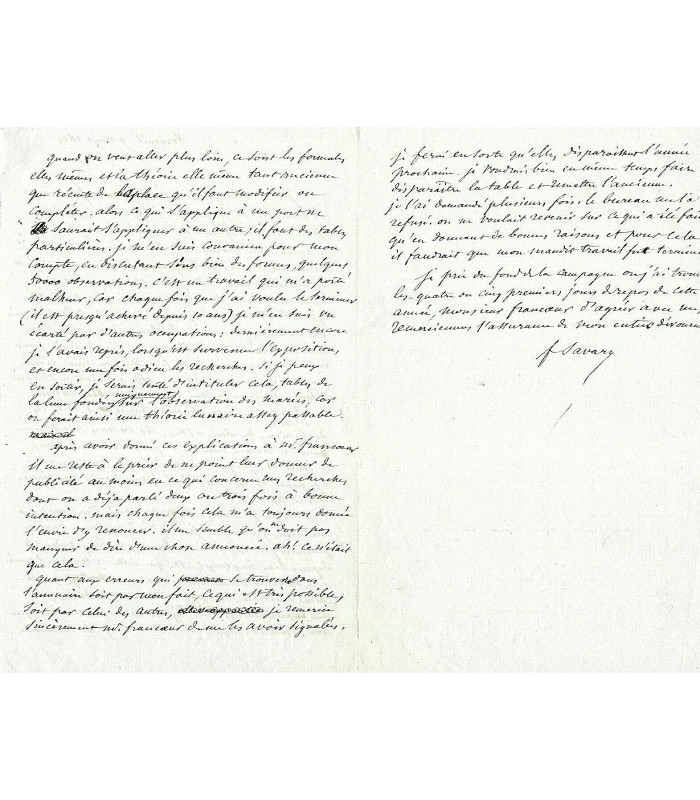 quand on veut aller plus loin, ce sont les formules
elles mêmes et la théorie elle même tant ancienne
que récente de Laplace qu'il faut modifier ou
compléter. alors ce qui s'applique à un port ne
saurait s'appliquer à un autre; il faut des tables
particulières. je m'en suis convaincu pour mon
compte, en discutant sous bien des formes, quelques
50000 observations. c'est un travail qui m'a porté
malheur, car chaque fois que j'ai voulu le terminer
(il est presqu'achevé depuis 10 ans) je m'en suis vu
écarté par d'autres occupations: dernièrement encore
je l'avais repris, lorsqu'est survenue l'exposition,
et encore une fois adieu les recherches. si je puis
en sortir, je serais tenté d'intituler cela, tables de
la lune fondées uniquement sur l'observation des marées, car
on ferait ainsi une théorie lunaire assez passable.
après avoir donné ces explications à Mr. francoeur
il me reste à le prier de ne point leur donner de
publicité au moins en ce qui concerne mes recherches
dont on a déja parlé deux ou trois fois à bonne
intention. mais chaque fois cela m'a toujours donné
l'envie d'y renoncer. il me semble qu'on doit pas
manquer de dire d'une chose annoncée, ah! ce n'était
que cela.
quant aux erreurs qui se trouvent dans
l'annuaire soit par mon fait, ce qui est très possible,
soit par celui des autres, je remercie
sincèrement Mr. francoeur de me les avoir signalées.
je ferai en sorte qu'elles disparaissent l'année
prochaine. je voudrais bien en même temps faire
disparaître la table et remettre l'ancienne.
je l'ai demandé plusieurs fois. le bureau me l'a
refusé. on ne voulait revenir sur ce qui a été fait
qu'en donnant de bonnes raisons et pour cela
il faudrait que mon maudit travail fut terminé
je prie du fond de la campagne où j'ai trouvé
les quatre ou cinq premiers jours de repos de cette
année, monsieur francoeur d'agréer avec mes
remerciemens l'assurance de mon entier dévouement
f Savary